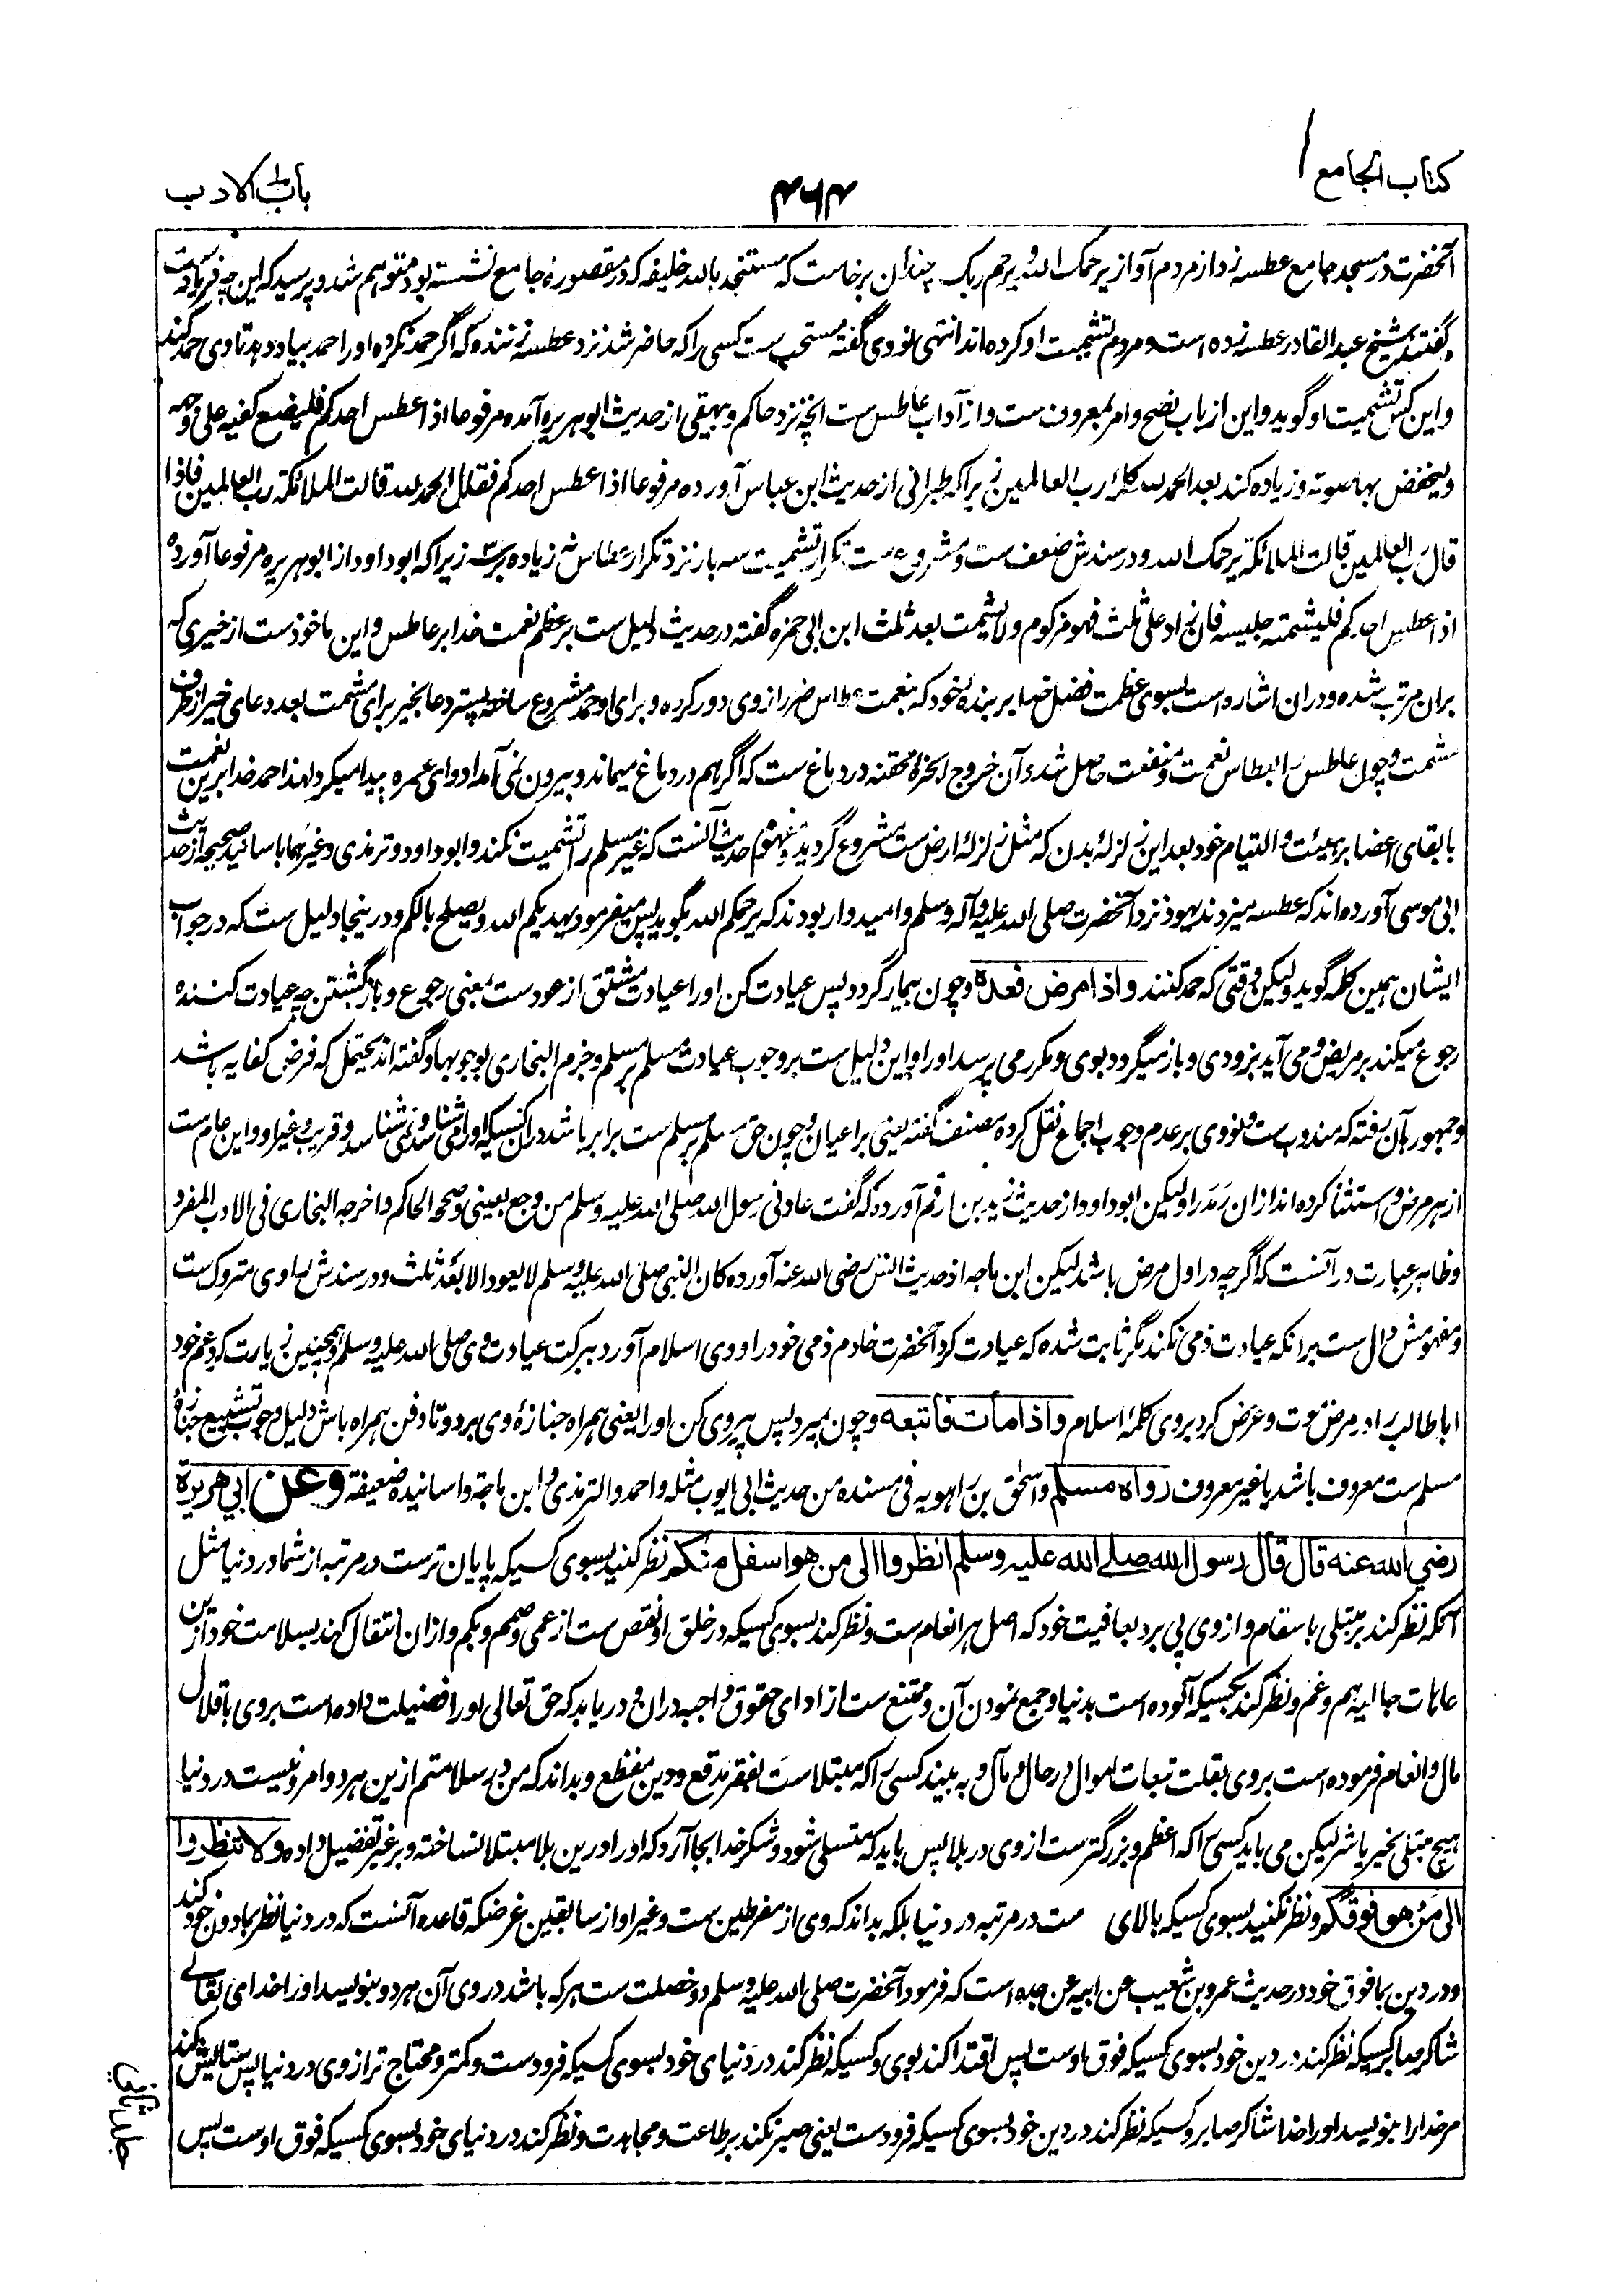 کتاب الجامع
۴۶۴
باب الادب
آنحضرت در مسجد جامع عطسه زد از مردم آواز یرحمک الله و یرحم ربک چندان برخاست که مستنجد بالله خلیفه که در مقصورهٔ جامع نشسته بود متوهم شد و پرسید که این چه فریادست
گفتند شیخ عبدالقادر عطسه زده است و مردم تشمیت او کرده اند انتهی نووی گفته مستحب ست کسی را که حاضر شد نزد عطسه زننده که اگر حمد نکرده او را حمد بیاد دهد تا وی حمد کند
و این کس تشمیت او گوید و این از باب نصح و امر بمعروف ست و از آداب عاطس ست انچه نزد حاکم و بیهقی از حدیث ابو هریره آمده مرفوعا اذا عطس احدکم فلیضع کفیه علی وجهه
ولیخفض بها صوته و زیاده کند بعد الحمد لله کلمهٔ رب العالمین زیرا که طبرانی از حدیث ابن عباس آورده مرفوعا اذا عطس احدکم فقال الحمد لله قالت الملائکة رب العالمین فاذا
قال رب العالمین قالت الملائکة یرحمک الله و در سندش ضعف ست و مشروع ست تکرار تشمیت سه بار نزد تکرار عطاس نه زیاده بر سه زیرا که ابو داود از ابو هریره مرفوعا آورده
اذا عطس احدکم فلیشمته جلیسه فان زاد علی ثلث فهو مزکوم ولا یشمت بعد ثلث ابن ابی جمره گفته در حدیث دلیل ست بر عظم نعمت خدا بر عاطس و این ماخوذ ست از خیری که
بران مرتب شده و دران اشاره است بسوی عظمت فضل خدا بر بندهٔ خود که بنعمت عطاس ضرر از وی دور کرده و برای او حمد مشروع ساخته پستر دعا بخیر برای مشمت بعد دعای خیر از طرف
مشمت و چون عاطس را بعطاس نعمت و منفعت حاصل شد و آن خروج ابخرهٔ محتقنه در دماغ ست که اگر هم در دماغ میماند و بیرون نمی آمد ادوای عسره پیدا میکرد لهذا حمد خدا برین نعمت
با بقای اعضا بر هیئت و التیام خود بعد این زلزلهٔ بدن که مثل زلزلهٔ ارض ست مشروع گردید و مفهوم حدیث آنست که غیر مسلم را تشمیت نکند و ابو داود و ترمذی و غیرهما باسانید صحیحه از حدیث
ابی موسی آورده اند که عطسه میزدند یهود نزد آنحضرت صلی الله علیه و آله وسلم و امیدوار بودند که یرحمکم الله بگوید پس میفرمود یهدیکم الله و یصلح بالکم و درینجا دلیل ست که در جواب
ایشان همین کلمه گوید ولیکن وقتی که حمد کنند واذا مرض فعده و چون بیمار گردد پس عیادت کن او را عیادت مشتق از عود ست بمعنی رجوع و بازگشتن چه عیادت کننده
رجوع میکند بر مریض و می آید بزودی و باز میگردد بوی و مکرر می پرسد او را و این دلیل ست بر وجوب عیادت مسلم بر مسلم و جزم البخاری بوجوبها و گفته اند یحتمل که فرض کفایه باشد
و جمهور بآن رفته که مندوب ست و نووی بر عدم وجوب اجماع نقل کرده مصنف گفته یعنی بر اعیان و چون حق مسلم بر مسلم ست برابر باشد دران کسیکه او را می شناسد و نمی شناسد و قریب و غیر او و این عام ست
از هر مرض و استثنا کرده اند ازان رمد را ولیکن ابو داود از حدیث زید بن ارقم آورده که گفت عادنی رسول الله صلی الله علیه وسلم من وجع بعینی و صححه الحاکم و اخرجه البخاری فی الادب المفرد
و ظاهر عبارت در آنست که اگرچه در اول مرض باشد لیکن ابن ماجه از حدیث انس رضی الله عنه آورده کان النبی صلی الله علیه وسلم لا یعود الا بعد ثلث و در سندش راوی متروک ست
و مفهومش دال ست برانکه عیادت ذمی نکند مگر ثابت شده که عیادت کرد آنحضرت خادم ذمی خود را و وی اسلام آورد ببرکت عیادت وی صلی الله علیه وسلم و همچنین زیارت کرد عم خود
ابا طالب را در مرض موت و عرض کرد بروی کلمهٔ اسلام واذا مات فاتبعه و چون بمیرد پس پیروی کن او را یعنی همراه جنازهٔ وی برو و تا دفن همراه باش دلیل وجوب تشییع جنازهٔ
مسلم ست معروف باشد یا غیر معروف رواه مسلم و اسحٰق بن راهویه فی مسنده من حدیث ابی ایوب مثله و احمد و الترمذی و ابن ماجة و اسانیده ضعیفة وعن ابی هریرة
رضی الله عنه قال قال رسول الله صلی الله علیه وسلم انظروا الی من هو اسفل منکم نظر کنید بسوی کسیکه پایان ترست در مرتبه از شما در دنیا مثل
آنکه نظر کند بر مبتلی باسقام و از وی پی برد بعافیت خود که اصل هر انعام ست و نظر کند بسوی کسیکه در خلق او نقص ست از عمی و صمم و بکم و ازان انتقال کند بسلامت خود ازین
عاهات جالبه هم و غم و نظر کند بکسیکه آلوده است بدنیا و جمع نمودن آن و ممتنع ست از ادای حقوق واجبه دران و دریابد که حق تعالی او را فضیلت داده است بروی باقلال
مال و انعام فرموده است بروی بقلت تبعات اموال در حال و مآل و به بیند کسی را که مبتلاست بفقر مدقع و دین مفظع و بداند که من در سلامتم ازین هر دو امر و نیست در دنیا
هیچ مبتلی بخیر یا شر لیکن می یابد کسی را که اعظم و بزرگترست از وی در بلا پس باید که متسلی شود و شکر خدا بجا آرد که او را درین بلا مبتلا نساخته و بر غیر تفضیل داده ولا تنظروا
الی من هو فوقکم و نظر نکنید بسوی کسیکه بالای ست در مرتبه در دنیا بلکه بداند که وی از مفرطین ست و غیر او از سابقین غرضکه قاعده آنست که در دنیا نظر بمادون خود کند
و در دین بمافوق خود در حدیث عمرو بن شعیب عن ابیه عن جده است که فرمود آنحضرت صلی الله علیه وسلم دو خصلت ست هر که باشد در وی آن هر دو بنویسد او را خدای تعالی
شاکر صابر کسیکه نظر کند در دین خود بسوی کسیکه فوق اوست پس اقتدا کند بوی و کسیکه نظر کند در دنیای خود بسوی کسیکه فرودست و کمتر و محتاج تر از وی در دنیا پس ستایش کند
مر خدا را بنویسد او را خدا شاکر صابر و کسیکه نظر کند در دین خود بسوی کسیکه فرودست یعنی صبر نکند بر طاعت و مجاهدت و نظر کند در دنیای خود بسوی کسیکه فوق اوست پس
جلد ثانی